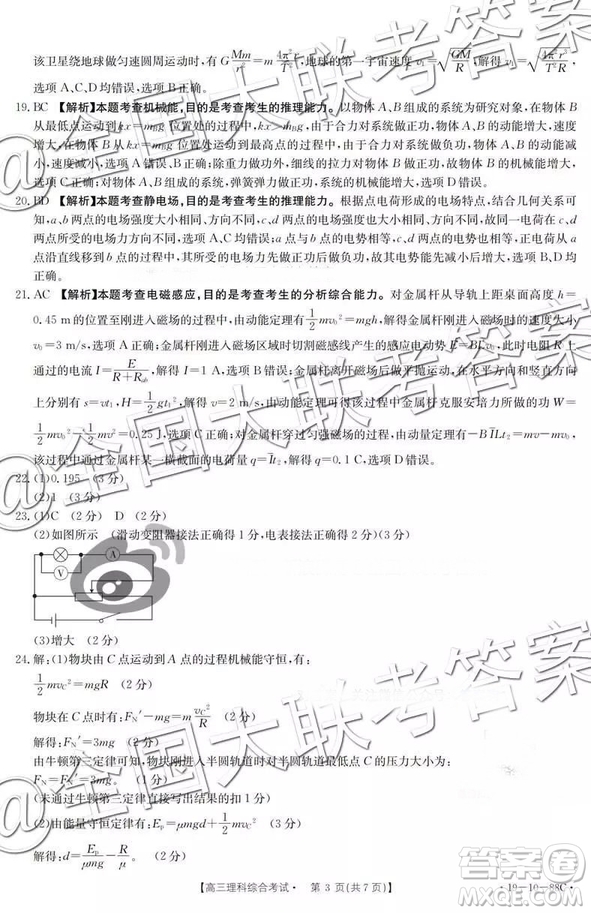 该卫星绕地球做匀速圆周运动时,有G\frac{Mm}{r^2}=m\frac{4π^2r}{T^2},地球的第一宇宙速度v_1=\sqrt{\frac{GM}{R}},解得v_1=\sqrt{\frac{4π^2r^3}{T^2R}},
选项A、C、D均错误,选项B正确。
19. BC 【解析】本题考查机械能,目的是考查考生的推理能力。以物体A、B组成的系统为研究对象,在物体B
从最低点运动到kx=m_Bg位置处的过程中,kx>m_Bg,由于合力对系统做正功,系统的动能增大,速度
增大,在物体B从kx=m_Bg位置处运动到最高点的过程中,kx<m_Bg,由于合力对系统做负功,系统的动
能减小,速度减小,选项A错误、B正确;由于物体B上升的过程中,细线的拉力对物体B做正功,物体B的机械能增大,
选项C正确;对物体A、B组成的系统,弹簧弹力做正功,系统的机械能增大,选项D错误。
20. BD 【解析】本题考查静电场,目的是考查考生的推理能力。根据点电荷形成的电场特点,结合几何关系可
知,a、b两点的电场强度大小相同、方向不同,a、b两点的电势相同,故同一电荷在a、b两点的电势能相
等,所受的电场力方向不同,选项A、C均错误;a点与b点的电势相等,选项B正确;正电荷从a点
沿直线移到b点的过程中,电场力先做负功后做正功,因此其电势能先增大后减小,选项D
正确。
21. AC 【解析】本题考查电磁感应,目的是考查考生的分析综合能力。对金属杆从导轨上距桌面高度h=
0.45 m的位置至刚进入磁场的过程中,由动能定理有\frac{1}{2}mv_0^2=mgh,解得刚进入磁场时的速度大小
v_0=3 m/s,选项A正确;金属杆刚进入磁场区域时切割磁感线产生的感应电动势E=BLv_0,此时电阻R上
通过的电流I=\frac{E}{R+R_{ab}},解得I=1 A,选项B错误;金属杆离开磁场后做平抛运动,在水平方向和竖直方向
上分别有s=vt_1,h=\frac{1}{2}gt_1^2,由动能定理可得该过程中金属杆克服安培力所做的功W=
\frac{1}{2}mv_0^2-\frac{1}{2}mv^2=0.25 J,选项C正确;对金属杆穿过匀强磁场的过程,由动量定理有-BILt_2=mv-mv_0,
该过程中通过金属杆某一横截面的电荷量q=It_2,解得q=0.1 C,选项D错误。
22. (1)0.195 (3分)
(2)1 (3分)
23. (1)C (2分) D (2分)
(2)如图所示 (滑动变阻器接法正确得1分,电表接法正确得2分)(3分)
A
V
(3)增大 (2分)
24. 解:(1)物块由C点运动到A点的过程机械能守恒,有:
\frac{1}{2}mv_C^2=mgR (2分)
物块在C点时,有:F_N'-mg=m\frac{v_C^2}{R} (2分)
解得:F_N'=3mg (2分)
由牛顿第三定律可知,物块刚进入半圆轨道时对半圆轨道最低点C的压力大小为:
F_N=F_N'=3mg (2分)
(未通过牛顿第三定律直接得出结果的扣1分)
(2)由能量守恒定律有:E_p=μmgd+\frac{1}{2}mv_C^2 (2分)
解得:d=\frac{E_p}{μmg}-\frac{R}{μ} (2分)
【高三理科综合考试· 第3页(共7页)】
·19-10-88C·
@全国大联考答案